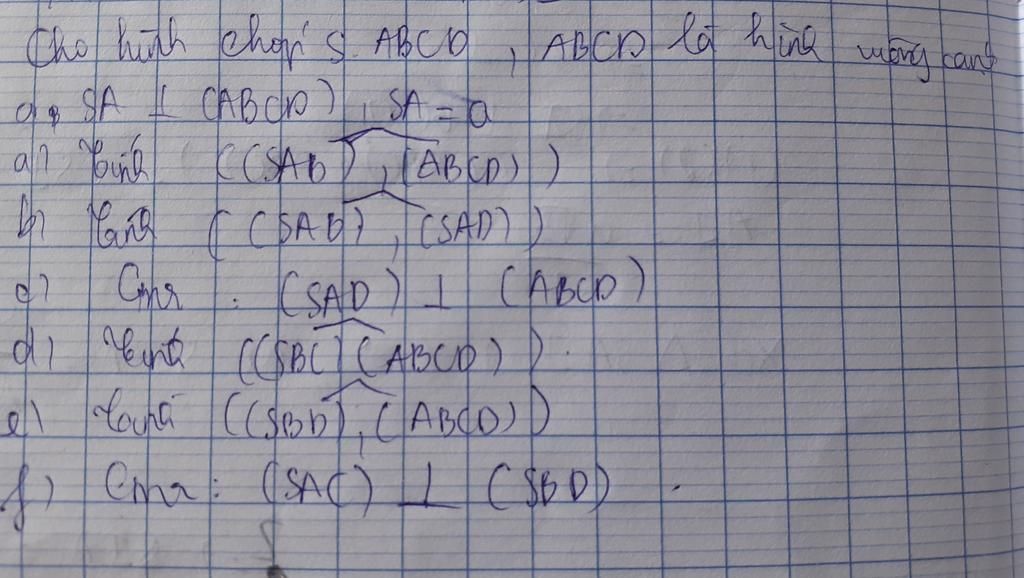 Cho hình chóp S.ABCD, ABCD là hình vuông cạnh
a, SA ⊥ (ABCD), SA = a
a) Tính ((SAB), (ABCD))
b) Tính ((SAB), (SAD))
c) Cmr : (SAD) ⊥ (ABCD)
d) Tính ((SBC) (ABCD)).
e) Tính ((SBD), (ABCD))
f) Cmr : (SAC) ⊥ (SBD).